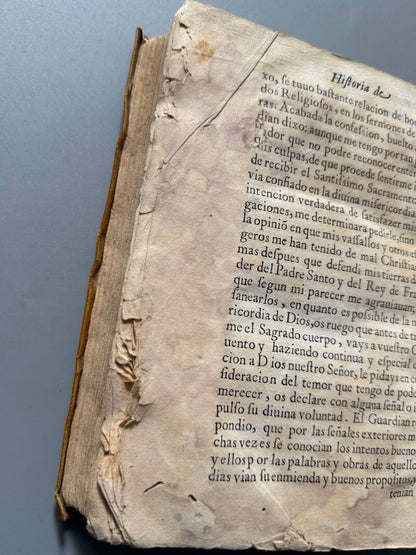 Historia de
xo, se tuuo bastante relacion de boc
dos Religiosos, en los sermones de
ras. Acabada la confession, buelto
dian dixo: aunque me tengo por tan
dor que no podre reconocer enter
mis culpas, de que procede sentirme
de recibir el Santissimo Sacramento
via confiado en la diuina misericord
intencion verdadera de satisfazer m
gaciones, me determinara pedirle, si no
la opinió en que mis vassallos y otros e
geros me han tenido de mal Christi
mas despues que defendi mis tierras d
der del Padre Santo y del Rey de Fr
que segun mi parecer me agrauiauan,
sanearlos, en quanto es possible de la
ricordia de Dios, os ruego que antes de t
me el Sagrado cuerpo, vays a vuestro C
uento y haziendo continua y especial o
cion a Dios nuestro Señor, le pidays en
sideracion del temor que tengo de pode
merecer, os declare con alguna señal o
pulso su diuina voluntad. El Guardian r
pondio, que por las señales exteriores m
chas vezes se conocian los intentos bueno
y ellos por las palabras y obras de aquello
dias vian su enmienda y buenos propositos, y
tenian